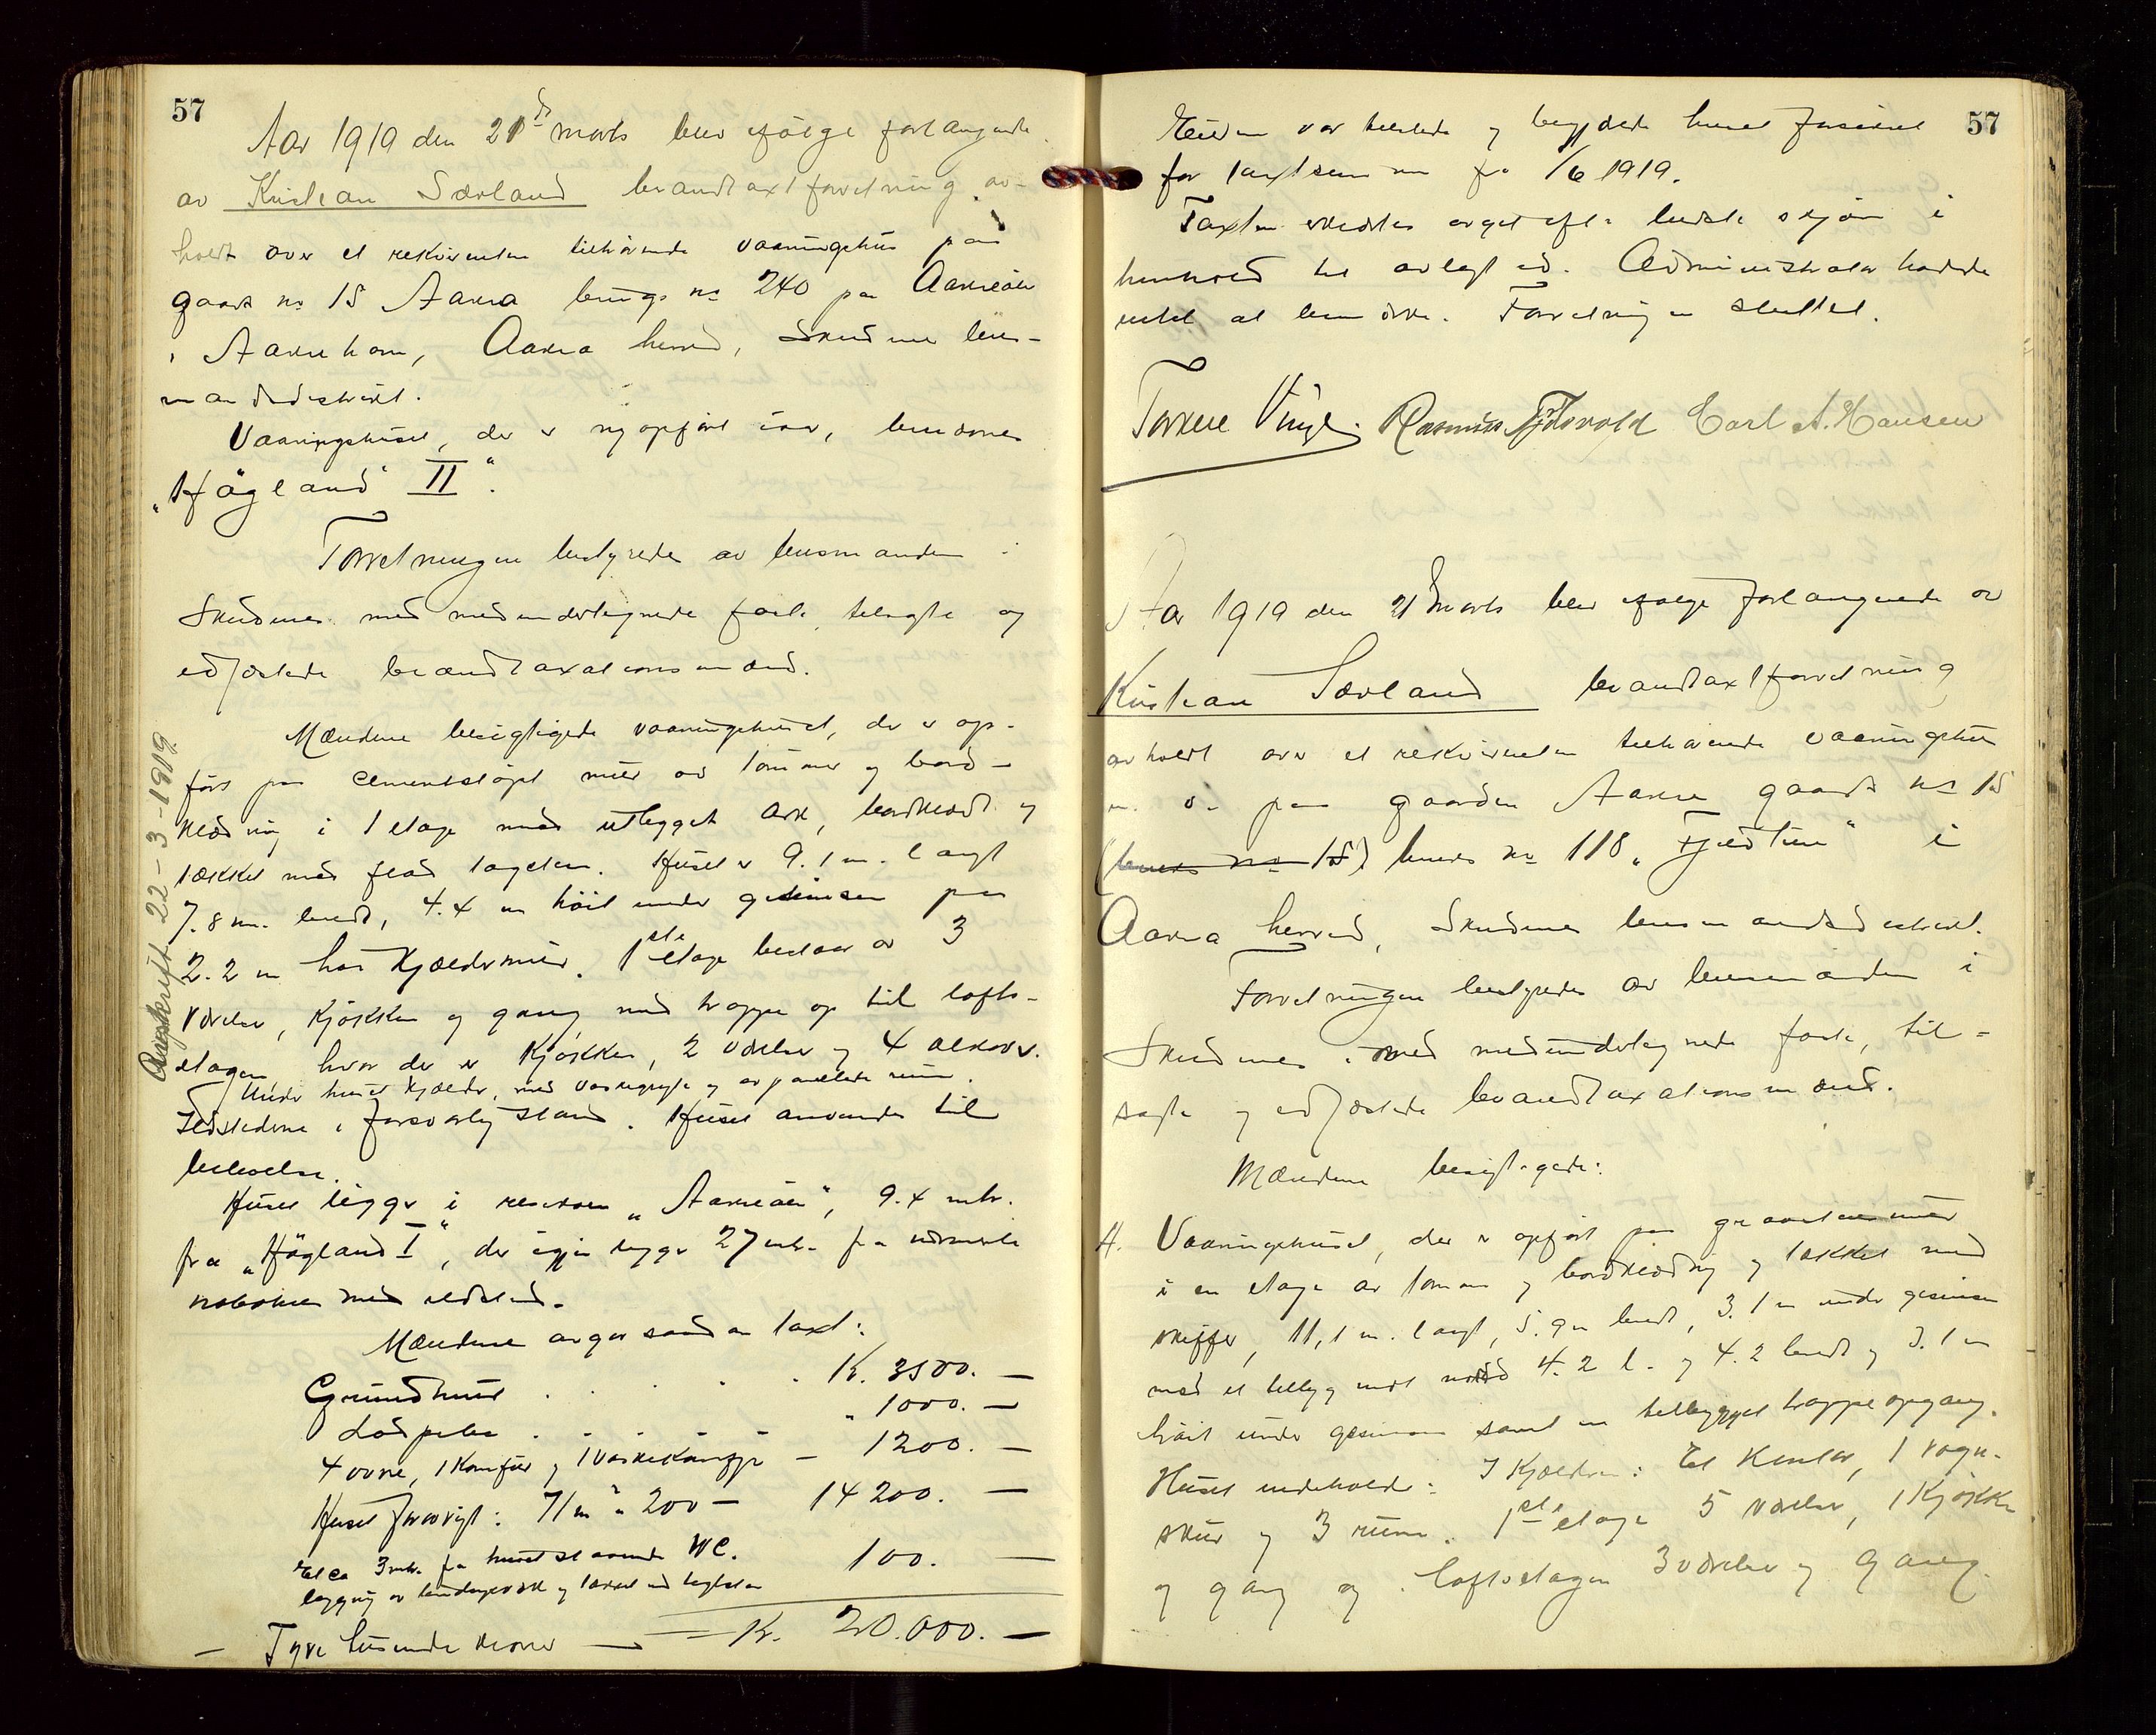 57
Aar 1919 den 21de marts blev ifölge forlangende
av Kristian Særland brandtaxtforretning av-
holdt over et rekvirenten tilhörende vaaningshus paa
gaards no 15 Aakra brugs no 240 paa Aakreöen
i Aakrehavn, Aakra herred, Skudenes lens-
mandsdistrikt.
Vaaningshuset, der er nyopfört iaar, benævnes
„Högland II".
Forretningen bestyredes av lensmanden i
Skudenes med medundertegnede faste, tilsagte og
edfæstede brandtaxationsmænd.
Mændene besigtigede vaaningshuset, der er op-
fört paa cementstöpt mur av tömmer og bord-
klædning i 1 etage med utbygget ark, bordklædt og
tækket med flad tagsten. Huset er 9.1 m. langt
7.8 m. bredt, 4.4 m höit under gesimsen paa
2.2 m höi kjældermur. 1ste etage bestaar av 3
værelser, kjökken og gang med trappe op til lofts-
etagen, hvor der er kjökken, 2 værelser og 4 alkover.
Under huset kjælder, med vaskegryte og avpanelede rum.
Ildstederne i forsvarlig stand. Huset anvendes til
beboelse.
Huset ligger i reksken „Aakreöen", 9.4 mtr.
fra „Högland I", der igjen ligger 27 mtr. fra nærmeste
nabohus med ildsted.
Mændene avgav saadan taxt:
Grundmur . . . . Kr. 3500. —
Lodpiber . . . " 1000. —
4 ovne, 1 komfur og 1 vaskekamfyr — 1200. —
Huset forövrigt: 71 m² à 200 — 14200. —
Et ca 3 mtr. fra huset staaende WC. 100. —
bygning av bindingsverk og tækket med tagsten
— Tyve tusende kroner — = Kr. 20.000. —
Avskrift 22-3-1919
57
Eieren var tilstede og begjærte huset forsikret
for taxtsummen fra 1/6 1919.
Taxten erklærtes avgit efter bedste skjön i
henhold til avlagt ed. Administrator hadde
intet at bemerke. Forretningen sluttet.
Torkel Vinje. Rasmus Ferkevold Carl A. Hansen
Aar 1919 den 21de marts blev ifölge forlangende av
Kristian Særland brandtaxtforretning
avholdt over et rekvirenten tilhörende vaaningshus
m. v. paa gaarden Aakra gaards no 15
(bruks no 15) bruks no 118 „Fjeldtun" i
Aakra herred, Skudenes lensmandsdistrikt.
Forretningen bestyredes av lensmanden i
Skudenes med medundertegnede faste, til-
sagte og edfæstede brandtaxationsmænd.
Mændene besigtigede:
A. Vaaningshuset, der er opfört paa graastensmur
i en etage av tömmer og bordklædning og tækket med
skiffer, 11,1 m. langt, 5.9 m bredt, 3.1 m under gesimsen
med et tilbyg mot nord 4.2 l. og 4.2 bredt og 3.1 m
höit under gesimsen samt en tilbygget trappeopgang.
Huset indeholder: I Kjælderen: Et kontor, 1 vogn-
skur og 3 rum. 1ste etage 5 værelser, 1 kjökken
og gang og i loftsetagen 3 værelser og gang.